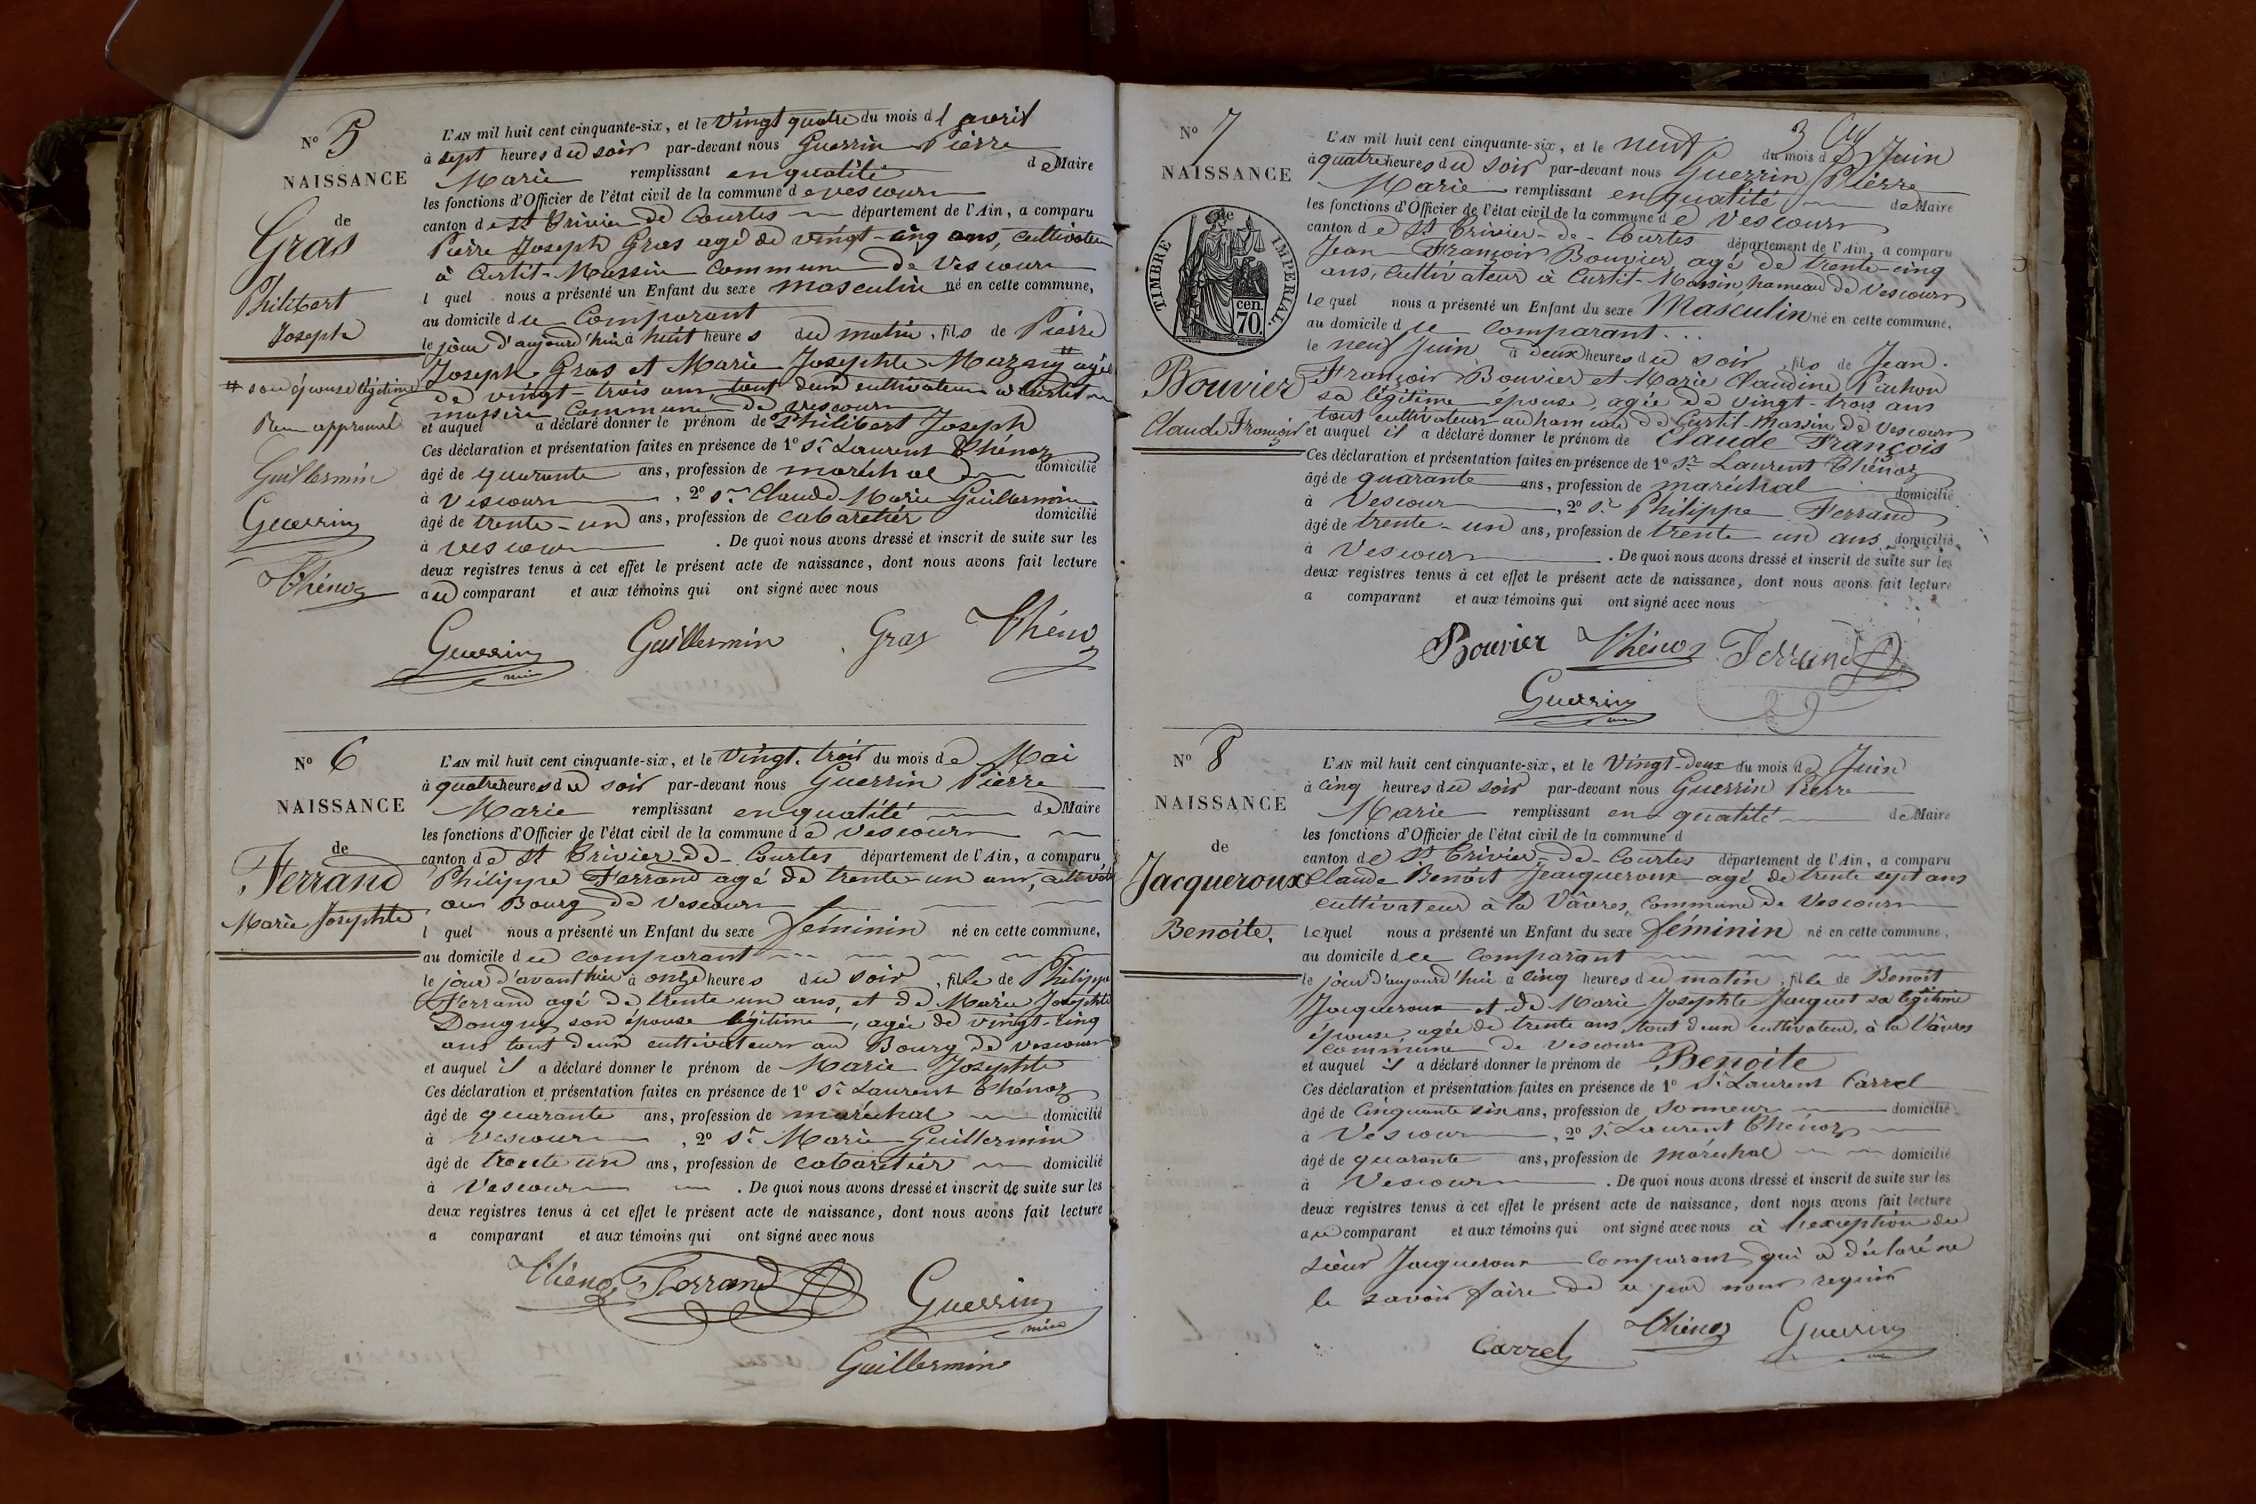 N° 5
NAISSANCE
de
Gras
Philibert
Joseph
# son épouse légitime
Renv. approuvé
Guillermin
Guerrin
Thénoz
L'AN mil huit cent cinquante-six, et le Vingt quatre du mois d'avril
à sept heures du soir par-devant nous Guerrin Pierre
Marie remplissant en qualité de Maire
les fonctions d'Officier de l'état civil de la commune de Vescours
canton de St Trivier de Courtes département de l'Ain, a comparu
Pierre Joseph Gras agé de vingt-cinq ans, cultivateur
à Curtit-Massin commune de Vescours
l quel nous a présenté un Enfant du sexe masculin né en cette commune,
au domicile du Comparant
le jour d'aujourd'hui à huit heures du matin, fils de Pierre
Joseph Gras et Marie Josephte Mazuy # agée
de vingt-trois ans, tout deux cultivateurs à Curtit
massin commune de Vescours
et auquel a déclaré donner le prénom de Philibert Joseph
Ces déclaration et présentation faites en présence de 1° Sr Laurent Thénoz
âgé de quarante ans, profession de maréchal domicilié
à Vescours, 2° Sr Claude Marie Guillermin
âgé de trente-un ans, profession de cabaretier domicilié
à Vescours. De quoi nous avons dressé et inscrit de suite sur les
deux registres tenus à cet effet le présent acte de naissance, dont nous avons fait lecture
au comparant et aux témoins qui ont signé avec nous
Guerrin Guillermin Gras Thénoz
N° 6
NAISSANCE
de
Ferrand
Marie Josephte
L'AN mil huit cent cinquante-six, et le Vingt-trois du mois de Mai
à quatre heures du soir par-devant nous Guerrin Pierre
Marie remplissant en qualité de Maire
les fonctions d'Officier de l'état civil de la commune de Vescours
canton de St Trivier-de-Courtes département de l'Ain, a comparu
Philippe Ferrand agé de trente-un ans, cultivat
au Bourg de Vescours
l quel nous a présenté un Enfant du sexe féminin né en cette commune,
au domicile du comparant
le jour d'avant hier à onze heures du soir, fille de Philippe
Ferrand agé de trente un ans, et de Marie Josephte
Donguy son épouse légitime, agée de vingt-cinq
ans tout deux cultivateurs au Bourg de Vescours
et auquel il a déclaré donner le prénom de Marie Josephte
Ces déclaration et présentation faites en présence de 1° Sr Laurent Thénoz
âgé de quarante ans, profession de maréchal domicilié
à Vescours, 2° Sr Marie Guillermin
âgé de trente un ans, profession de cabaretier domicilié
à Vescours. De quoi nous avons dressé et inscrit de suite sur les
deux registres tenus à cet effet le présent acte de naissance, dont nous avons fait lecture
a comparant et aux témoins qui ont signé avec nous
Thénoz Ferrand Guerrin
Guillermin
N° 7
NAISSANCE
de
TIMBRE IMPERIAL.
cen
70.
Bouvier
Claude François
L'AN mil huit cent cinquante-six, et le neuf du mois de Juin
à quatre heures du soir par-devant nous Guerrin Pierre
Marie remplissant en qualité de Maire
les fonctions d'Officier de l'état civil de la commune de Vescours
canton de St Trivier-de-Courtes département de l'Ain, a comparu
Jean François Bouvier agé de trente-cinq
ans, cultivateur à Curtit-Massin, hameau de Vescours
lequel nous a présenté un Enfant du sexe Masculin né en cette commune,
au domicile du comparant
le neuf Juin à deux heures du soir, fils de Jean
François Bouvier et Marie Claudine Pauthon
sa légitime épouse, agée de vingt-trois ans
tout cultivateurs au hameau de Curtit-Massin de Vescours
et auquel il a déclaré donner le prénom de Claude François
Ces déclaration et présentation faites en présence de 1° Sr Laurent Thénoz
âgé de quarante ans, profession de maréchal domicilié
à Vescours, 2° Sr Philippe Ferrand
âgé de trente-un ans, profession de trente un ans domicilié
à Vescours. De quoi nous avons dressé et inscrit de suite sur les
deux registres tenus à cet effet le présent acte de naissance, dont nous avons fait lecture
a comparant et aux témoins qui ont signé avec nous
Bouvier Thénoz Ferrand
Guerrin
N° 8
NAISSANCE
de
Jacqueroux
Benoite.
L'AN mil huit cent cinquante-six, et le Vingt-deux du mois de Juin
à cinq heures du soir par-devant nous Guerrin Pierre
Marie remplissant en qualité de Maire
les fonctions d'Officier de l'état civil de la commune d
canton de St Trivier-de-Courtes département de l'Ain, a comparu
Claude Benoit Jacqueroux agé de trente sept ans
cultivateur à la Vâvres, commune de Vescours
lequel nous a présenté un Enfant du sexe féminin né en cette commune,
au domicile du comparant
le jour d'aujourd'hui à cinq heures du matin, fille de Benoit
Jacqueroux et de Marie Josephte Jacquet sa légitime
épouse, agée de trente ans, tout deux cultivateurs, à la Vâvres
commune de Vescours
et auquel il a déclaré donner le prénom de Benoite
Ces déclaration et présentation faites en présence de 1° Sr Laurent Carrel
âgé de Cinquante six ans, profession de sonneur domicilié
à Vescours, 2° Sr Laurent Thénoz
âgé de quarante ans, profession de maréchal domicilié
à Vescours. De quoi nous avons dressé et inscrit de suite sur les
deux registres tenus à cet effet le présent acte de naissance, dont nous avons fait lecture
au comparant et aux témoins qui ont signé avec nous à l'exception du
sieur Jacqueroux comparant qui a déclaré ne
le savoir faire de ce par nous requis
Carrel Thénoz Guerrin